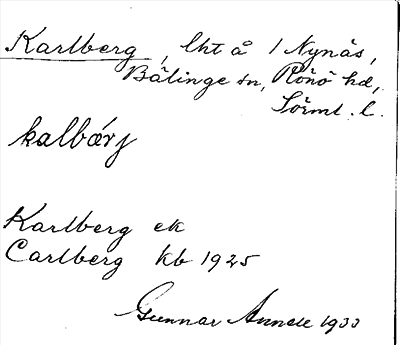 Karlberg, lht å / Nynäs,
Bälinge sn, Rönö hd,
Sörml. l.
kalbárj
Karlberg ek
Carlberg kb 1925
Gunnar 1933